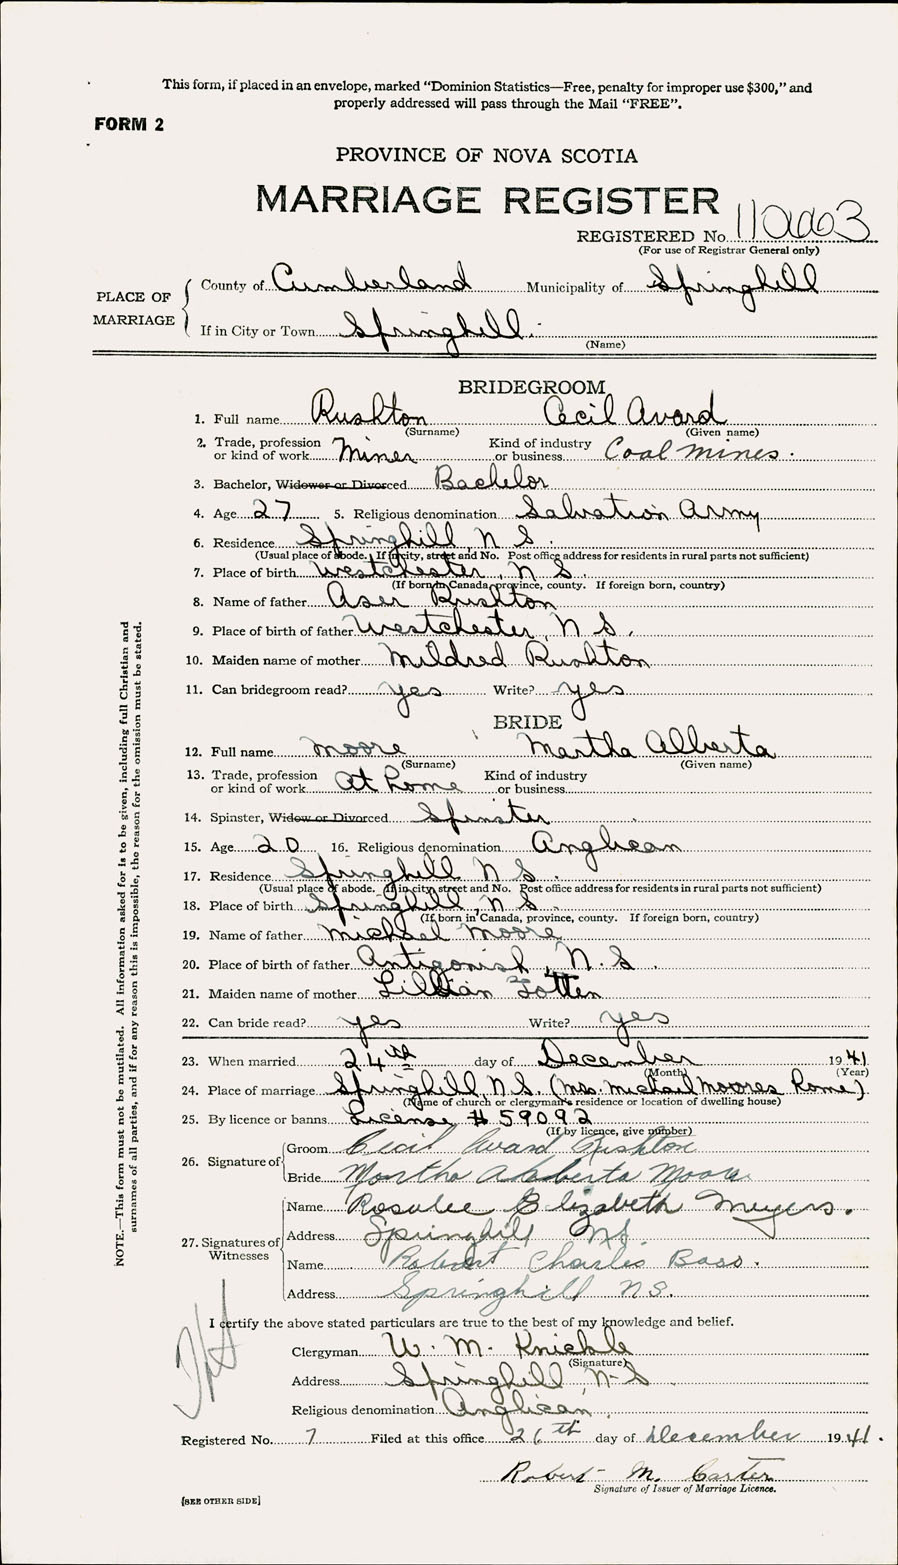 This form, if placed in an envelope, marked "Dominion Statistics—Free, penalty for improper use $300," and
properly addressed will pass through the Mail "FREE".
FORM 2
PROVINCE OF NOVA SCOTIA
MARRIAGE REGISTER
REGISTERED No. 110003
(For use of Registrar General only)
PLACE OF MARRIAGE
County of Cumberland Municipality of Springhill
If in City or Town Springhill.
(Name)
BRIDEGROOM
1. Full name Rushton Cecil Avard
(Surname) (Given name)
2. Trade, profession or kind of work Miner Kind of industry or business Coal mines.
3. Bachelor, Widower or Divorced Bachelor
4. Age 27 5. Religious denomination Salvation Army
6. Residence Springhill, N S.
(Usual place of abode. If in city, street and No. Post office address for residents in rural parts not sufficient)
7. Place of birth Westchester, N S.
(If born in Canada, province, county. If foreign born, country)
8. Name of father Aser Rushton
9. Place of birth of father Westchester, N S.
10. Maiden name of mother Mildred Rushton
11. Can bridegroom read? yes Write? yes
BRIDE
12. Full name Moore Martha Alberta
(Surname) (Given name)
13. Trade, profession or kind of work At home Kind of industry or business
14. Spinster, Widow or Divorced Spinster
15. Age 20 16. Religious denomination Anglican
17. Residence Springhill N S.
(Usual place of abode. If in city, street and No. Post office address for residents in rural parts not sufficient)
18. Place of birth Springhill, N S.
(If born in Canada, province, county. If foreign born, country)
19. Name of father Michael Moore
20. Place of birth of father Antigonish, N. S.
21. Maiden name of mother Lillian Totten
22. Can bride read? yes Write? yes
23. When married 24th day of December 1941
(Month) (Year)
24. Place of marriage Springhill, N.S. (Mrs. Michael Moores home)
(Name of church or clergyman's residence or location of dwelling house)
25. By licence or banns License # 59092
(If by licence, give number)
26. Signature of
Groom Cecil Avard Rushton
Bride Martha Alberta Moore
27. Signatures of Witnesses
Name Rosalee Elizabeth Meyers.
Address Springhill NS.
Name Robert Charles Bass.
Address Springhill NS.
I certify the above stated particulars are true to the best of my knowledge and belief.
Clergyman W. M. Knickle
(Signature)
Address Springhill N-S
Religious denomination Anglican.
Registered No. 7 Filed at this office 26th day of December 1941.
Robert M. Carter
Signature of Issuer of Marriage Licence.
[SEE OTHER SIDE]
NOTE.—This form must not be mutilated. All information asked for is to be given, including full Christian and
surnames of all parties, and if for any reason this is impossible, the reason for the omission must be stated.